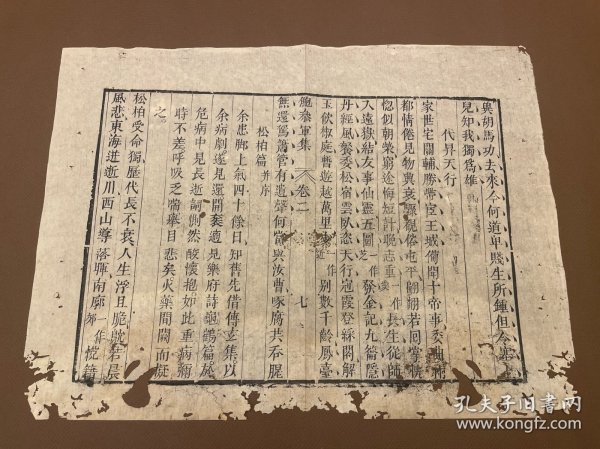 與胡馬功去來今何道卑賤生所鍾但令塞上
兒知我獨爲雄
代昇天行
家世宅關輔勝帶宦王城備聞十帝事委曲兩
都情倦見物興衰驟覩俗屯平翩翻若回掌
惚似朝榮窮途悔短計晚志重一作長生從師
入遠嶽結友事仙靈五圖一作芝發金記九籥隱
丹經風餐委松宿雲臥恣天行冠霞登綵閣解
玉飲椒庭暫遊越萬里一作近別數千齡鳳臺
鮑參軍集
卷二
七
無還駕簫管有遺聲何當與汝曹啄腐共吞腥
松柏篇并序
余患腳上氣四十餘日知舊先借傅玄集以
余病劇遂見還開袠適見樂府詩龜鶴篇於
危病中見長逝詞惻然酸懷抱如此重病彌
時不差呼吸乏喘舉目悲矣火藥間闕而擬
之
松柏受命獨歷代長不衰人生浮且脆鴥若晨
風悲東海迸逝川西山導落暉南廓一作郊悅籍
孔夫子旧书网
book.kongfz.com